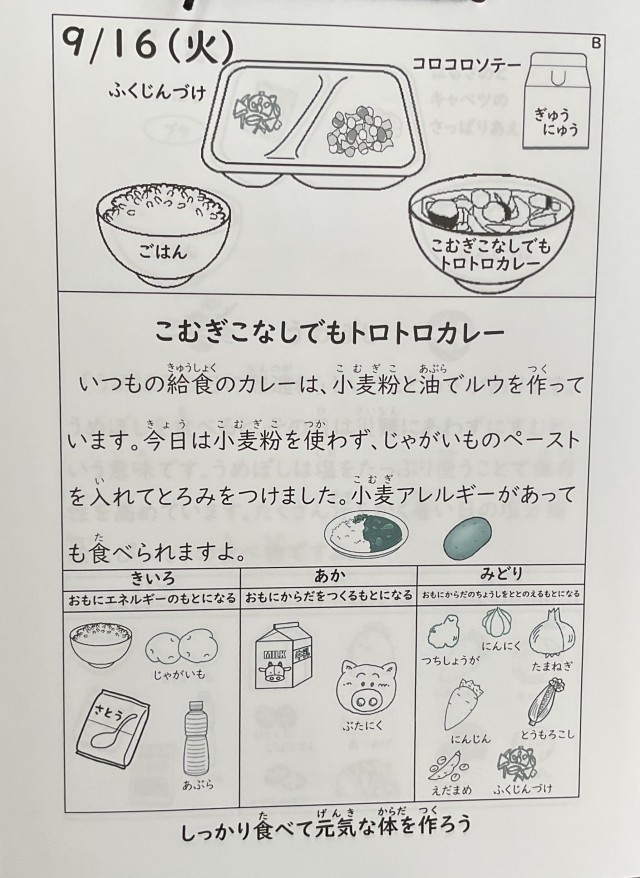 9/16(火)
B
ふくじんづけ
コロコロソテー
ぎゅう
にゅう
ごはん
こむぎこなしでも
トロトロカレー
こむぎこなしでもトロトロカレー
いつもの給食のカレーは、小麦粉と油でルウを作って
います。今日は小麦粉を使わず、じゃがいものペースト
を入れてとろみをつけました。小麦アレルギーがあって
も食べられますよ。
きいろ
あか
みどり
おもにエネルギーのもとになる
おもにからだをつくるもとになる
おもにからだのちょうしをととのえるもとになる
じゃがいも
さとう
あぶら
MILK
ぶたにく
つちしょうが
にんにく
たまねぎ
にんじん
とうもろこし
えだまめ
ふくじんづけ
しっかり食べて元気な体を作ろう